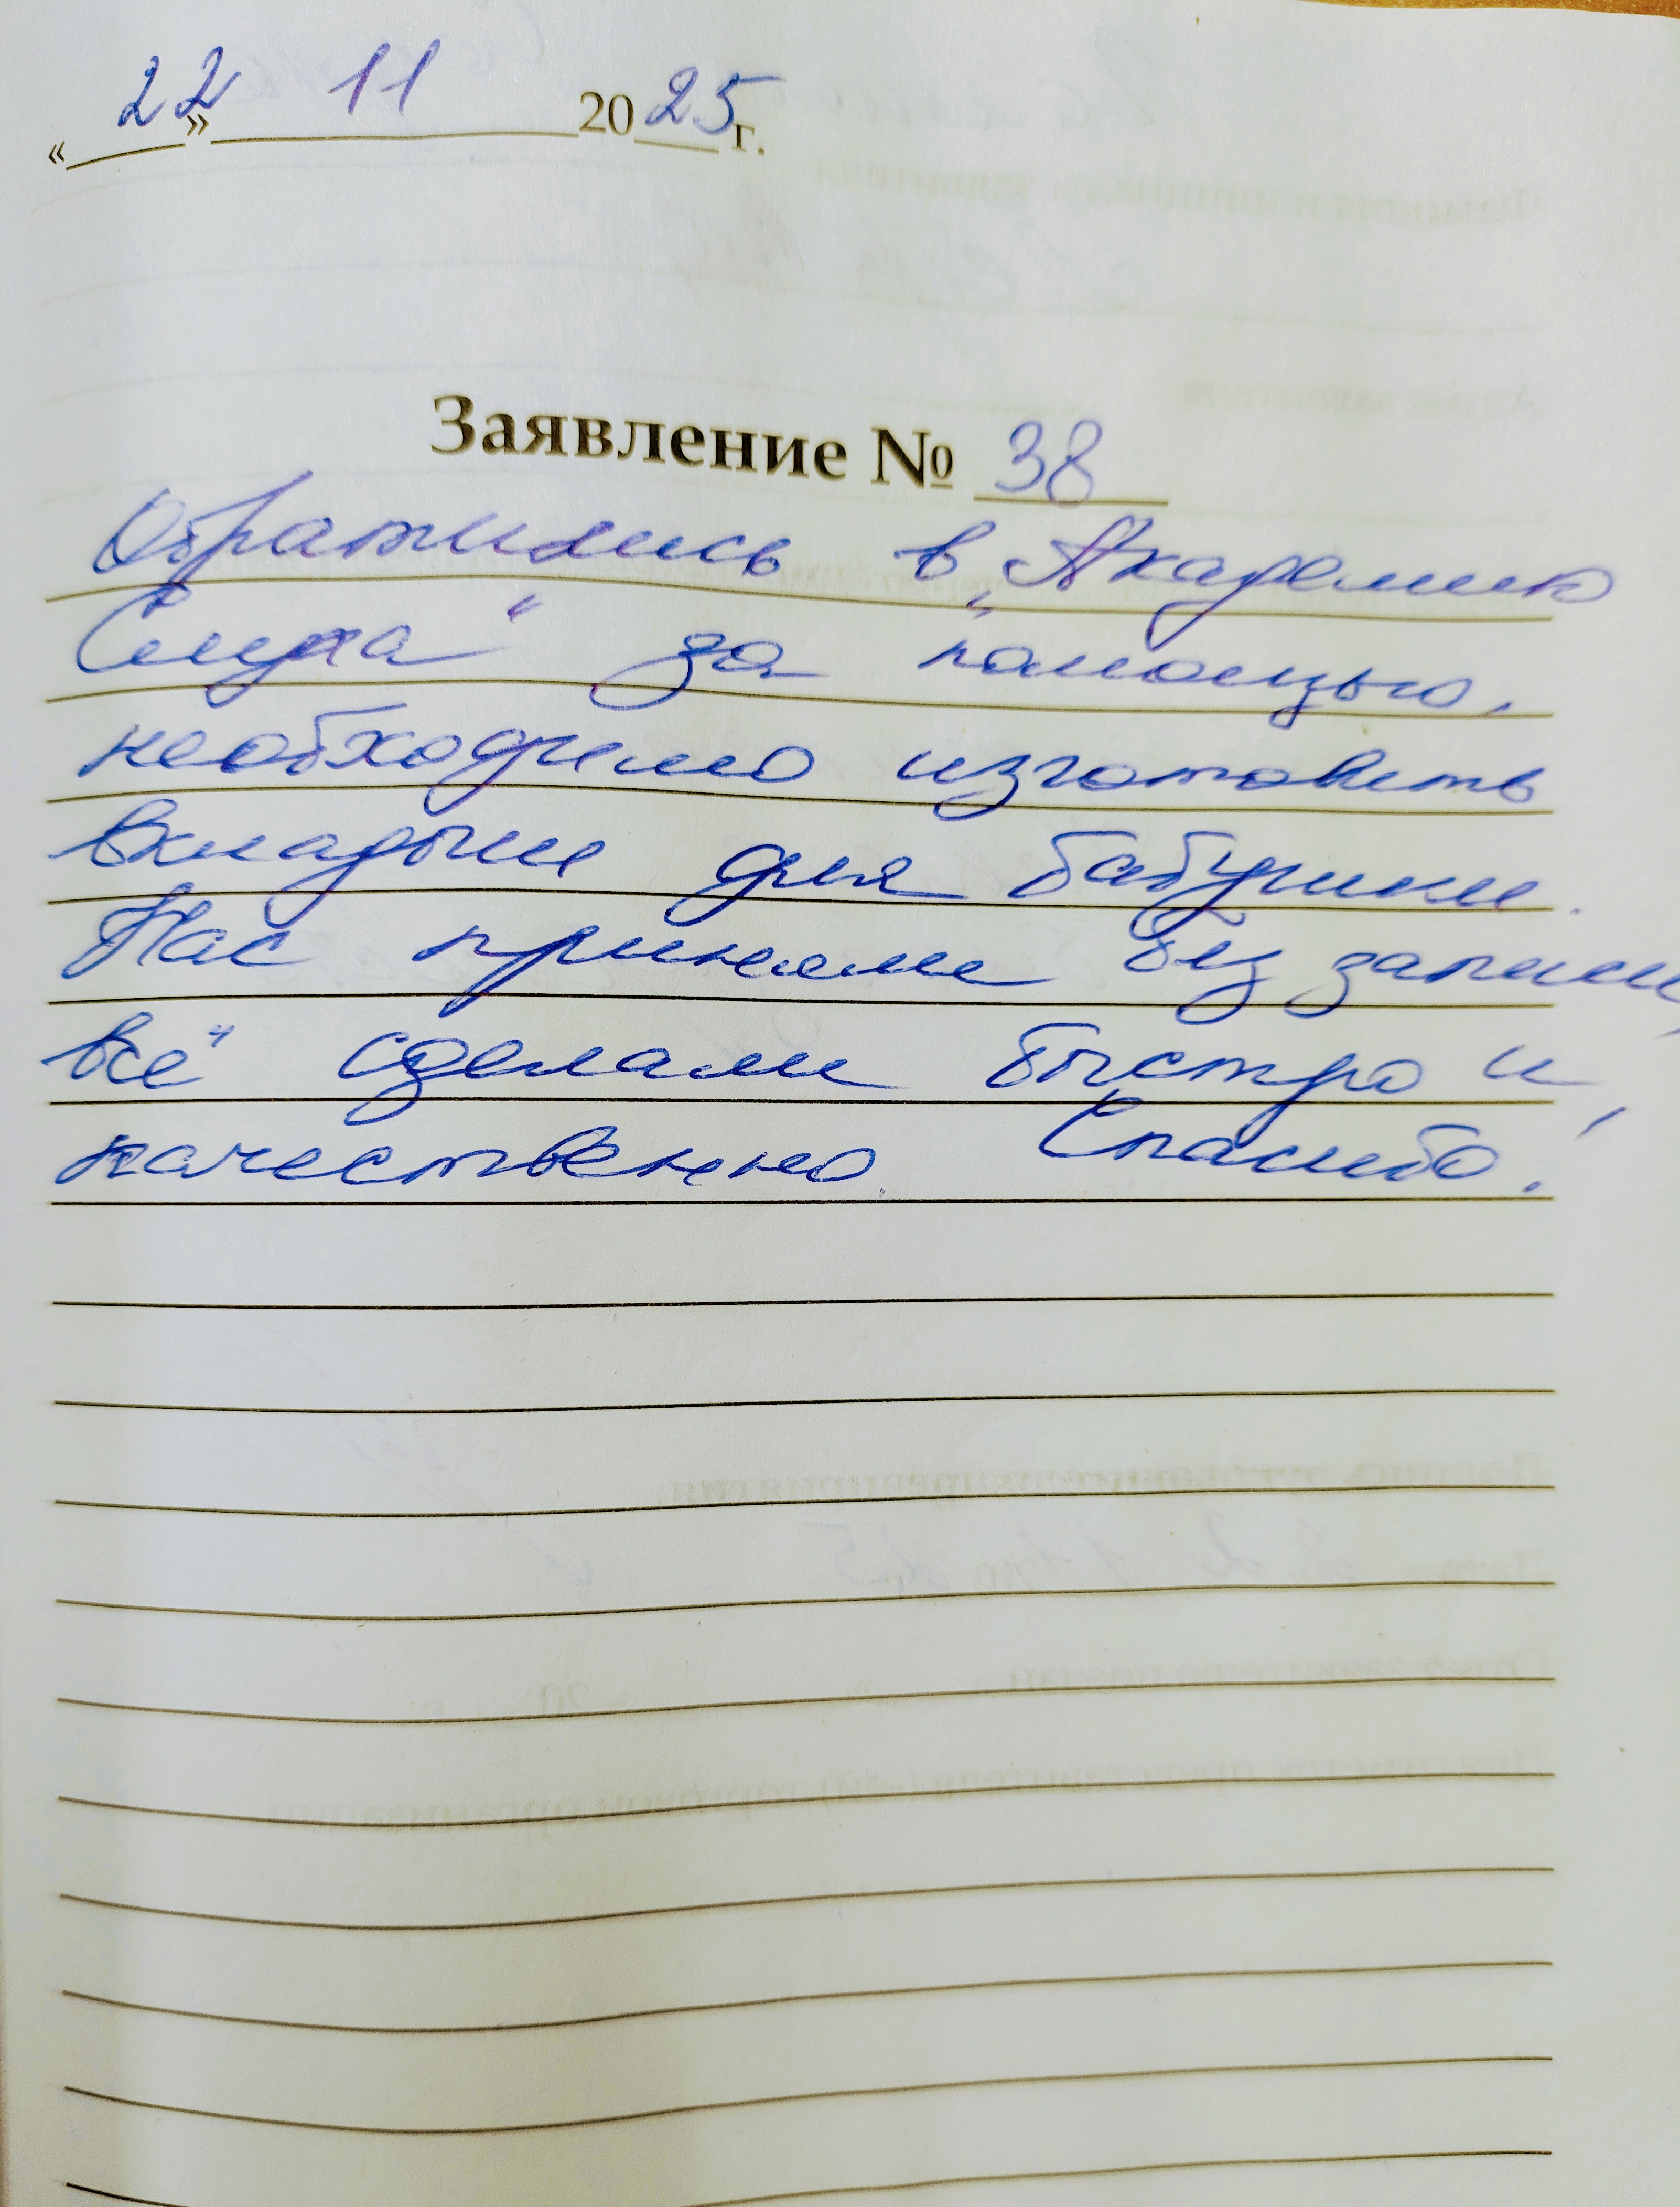 «22» 11 2025 г.
Заявление № 38
Обратились в „Академию
Слуха“ за помощью,
необходимо изготовить
вкладыши для бабушки.
Нас приняли без записи,
всё сделали быстро и
качественно. Спасибо!